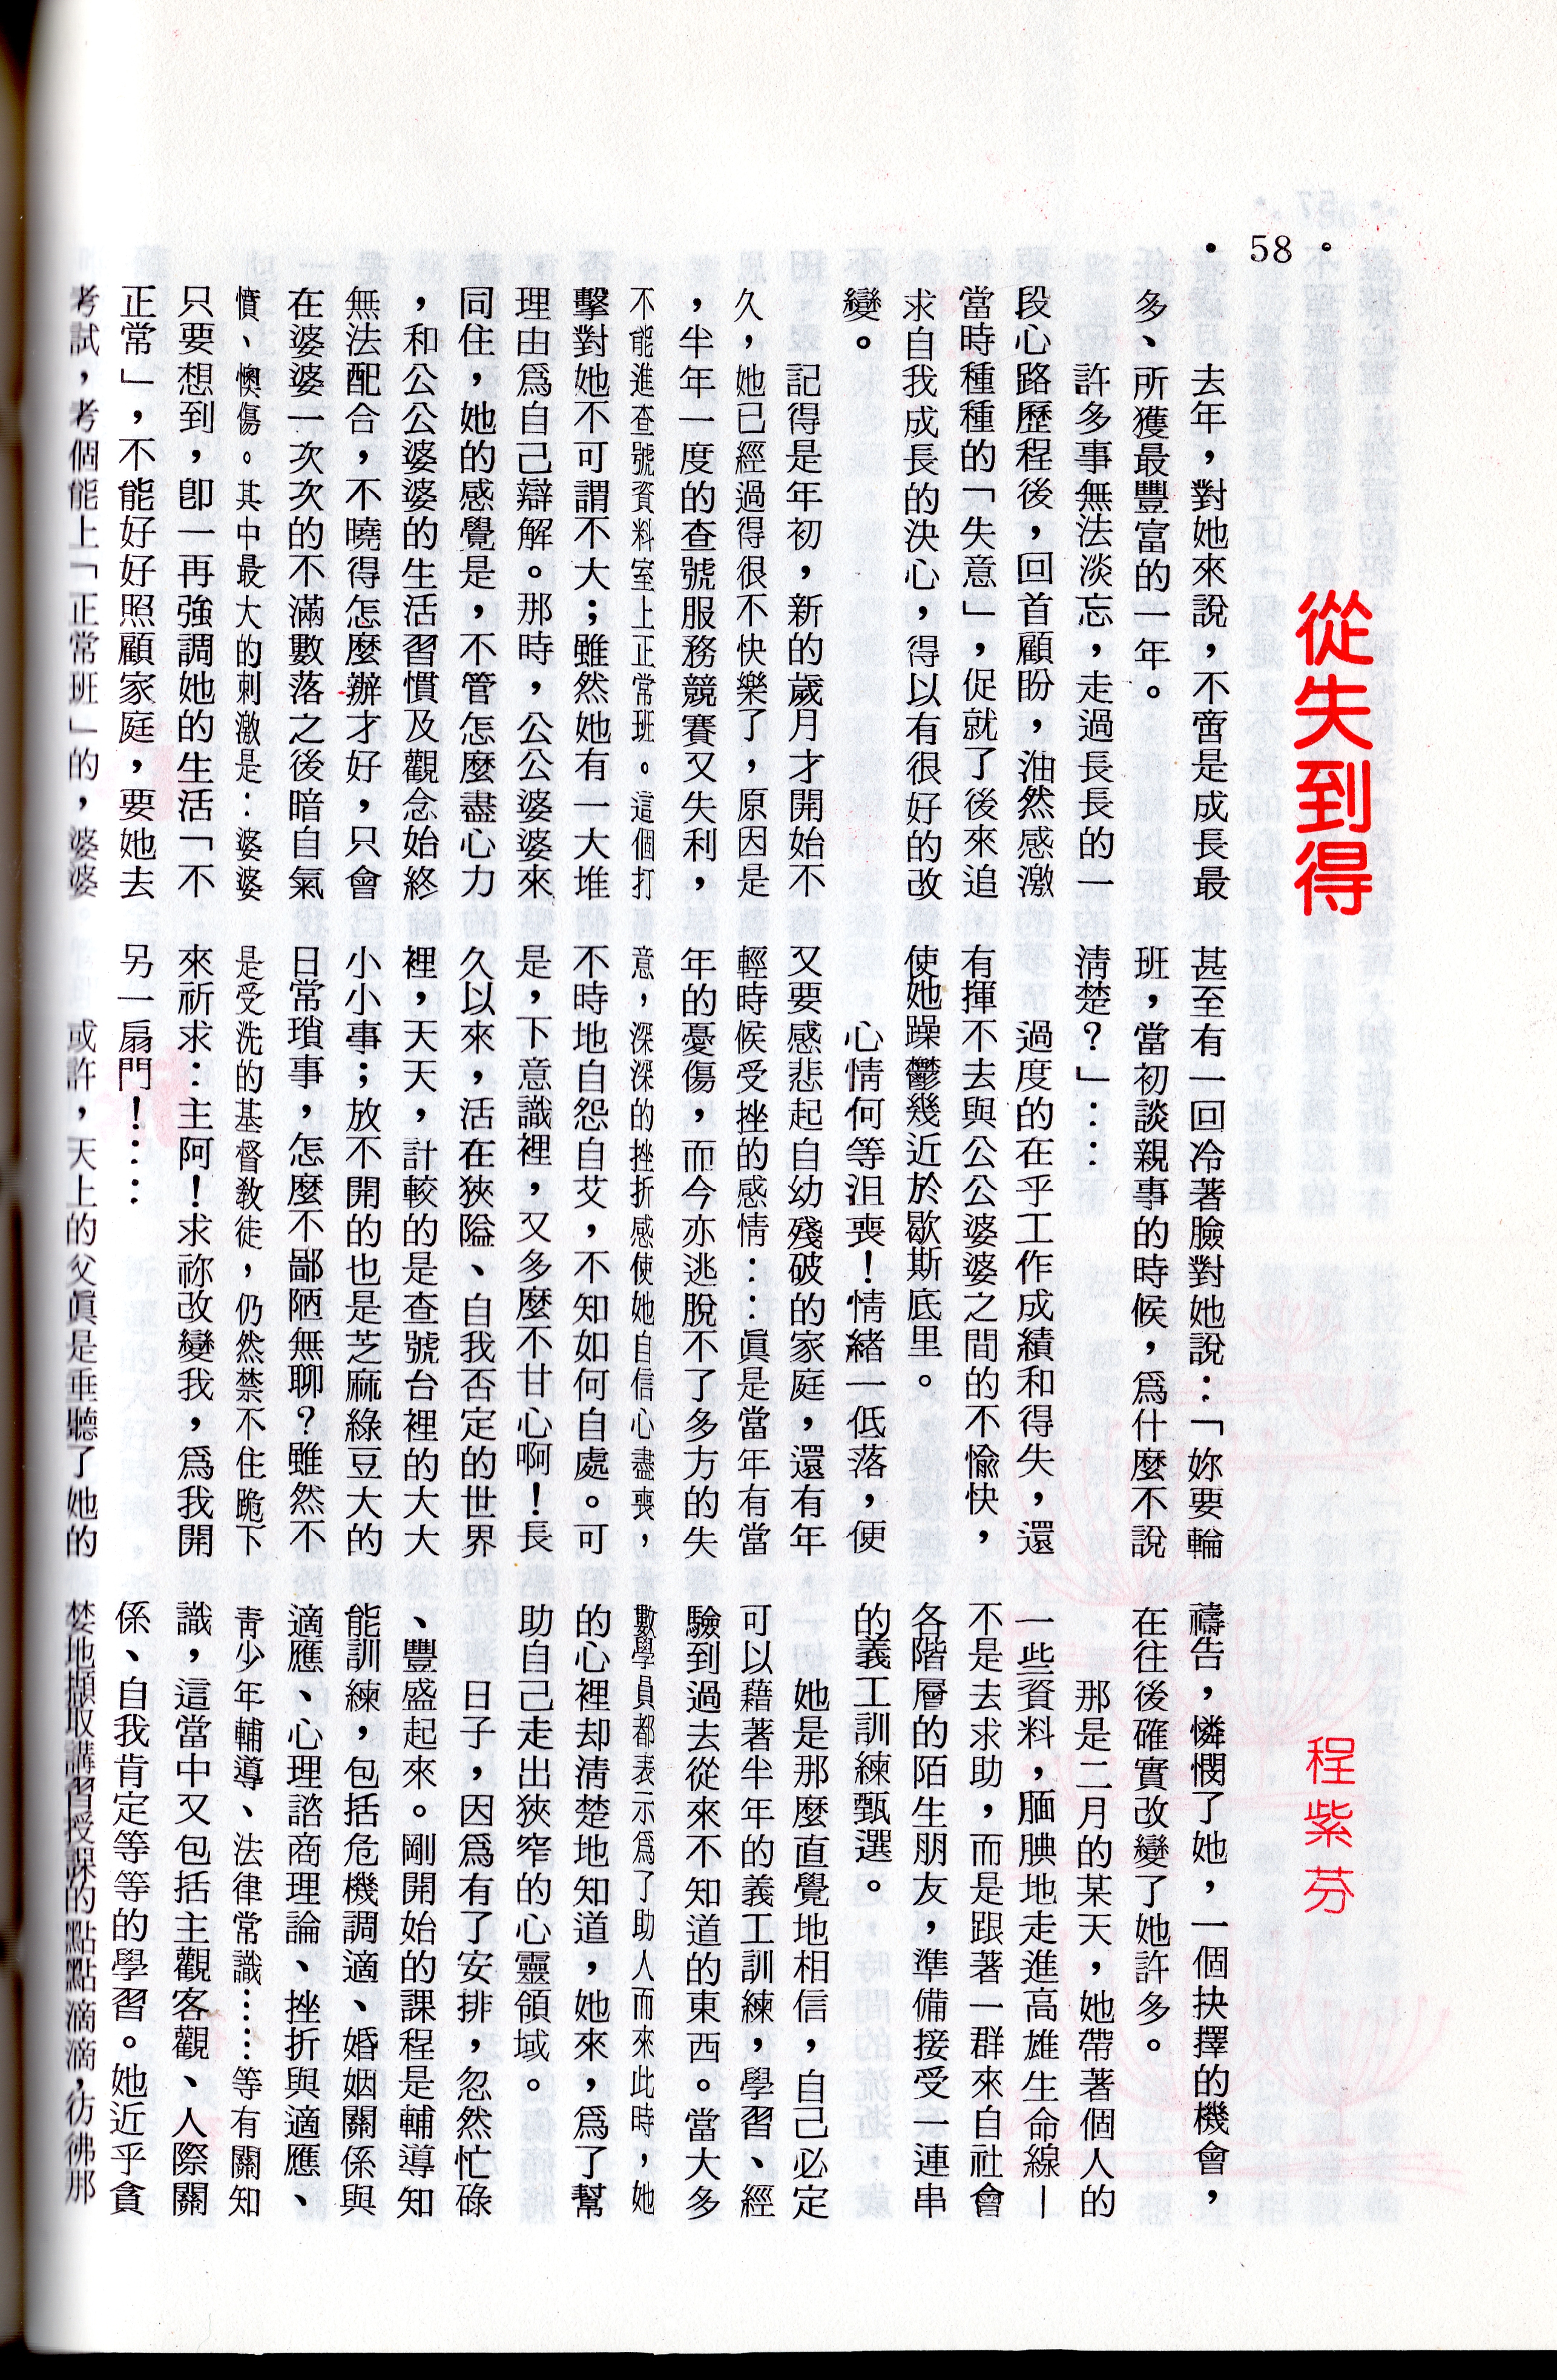 • 58 •
從失到得
程紫芬
去年，對她來說，不啻是成長最
多、所獲最豐富的一年。
許多事無法淡忘，走過長長的一
段心路歷程後，回首顧盼，油然感激
當時種種的「失意」，促就了後來追
求自我成長的決心，得以有很好的改
變。
記得是年初，新的歲月才開始不
久，她已經過得很不快樂了，原因是
，半年一度的查號服務競賽又失利，
不能進查號資料室上正常班。這個打
擊對她不可謂不大；雖然她有一大堆
理由爲自己辯解。那時，公公婆婆來
同住，她的感覺是，不管怎麼盡心力
，和公公婆婆的生活習慣及觀念始終
無法配合，不曉得怎麼辦才好，只會
在婆婆一次次的不滿數落之後暗自氣
憤、懊傷。其中最大的刺激是：婆婆
只要想到，卽一再強調她的生活「不
正常」，不能好好照顧家庭，要她去
考試，考個能上「正常班」的，婆婆
甚至有一回冷著臉對她說：「妳要輪
班，當初談親事的時候，爲什麼不說
清楚？」：：
過度的在乎工作成績和得失，還
有揮不去與公公婆婆之間的不愉快，
使她躁鬱幾近於歇斯底里。
心情何等沮喪！情緒一低落，便
又要感悲起自幼殘破的家庭，還有年
輕時候受挫的感情：：眞是當年有當
年的憂傷，而今亦逃脫不了多方的失
意，深深的挫折感使她自信心盡喪，
不時地自怨自艾，不知如何自處。可
是，下意識裡，又多麼不甘心啊！長
久以來，活在狹隘、自我否定的世界
裡，天天，計較的是查號台裡的大大
小小事；放不開的也是芝麻綠豆大的
日常瑣事，怎麼不鄙陋無聊？雖然不
是受洗的基督教徒，仍然禁不住跪下
來祈求：主阿！求祢改變我，爲我開
另一扇門！：：
或許，天上的父眞是垂聽了她的
禱告，憐憫了她，一個抉擇的機會，
在往後確實改變了她許多。
那是二月的某天，她帶著個人的
一些資料，腼腆地走進高雄生命線—
不是去求助，而是跟著一群來自社會
各階層的陌生朋友，準備接受一連串
的義工訓練甄選。
她是那麼直覺地相信，自己必定
可以藉著半年的義工訓練，學習、經
驗到過去從來不知道的東西。當大多
數學員都表示爲了助人而來此時，她
的心裡却清楚地知道，她來，爲了幫
助自己走出狹窄的心靈領域。
日子，因爲有了安排，忽然忙碌
、豐盛起來。剛開始的課程是輔導知
能訓練，包括危機調適、婚姻關係與
適應、心理諮商理論、挫折與適應、
靑少年輔導、法律常識……等有關知
識，這當中又包括主觀客觀、人際關
係、自我肯定等等的學習。她近乎貪
婪地擷取講習授課的點點滴滴，彷彿那